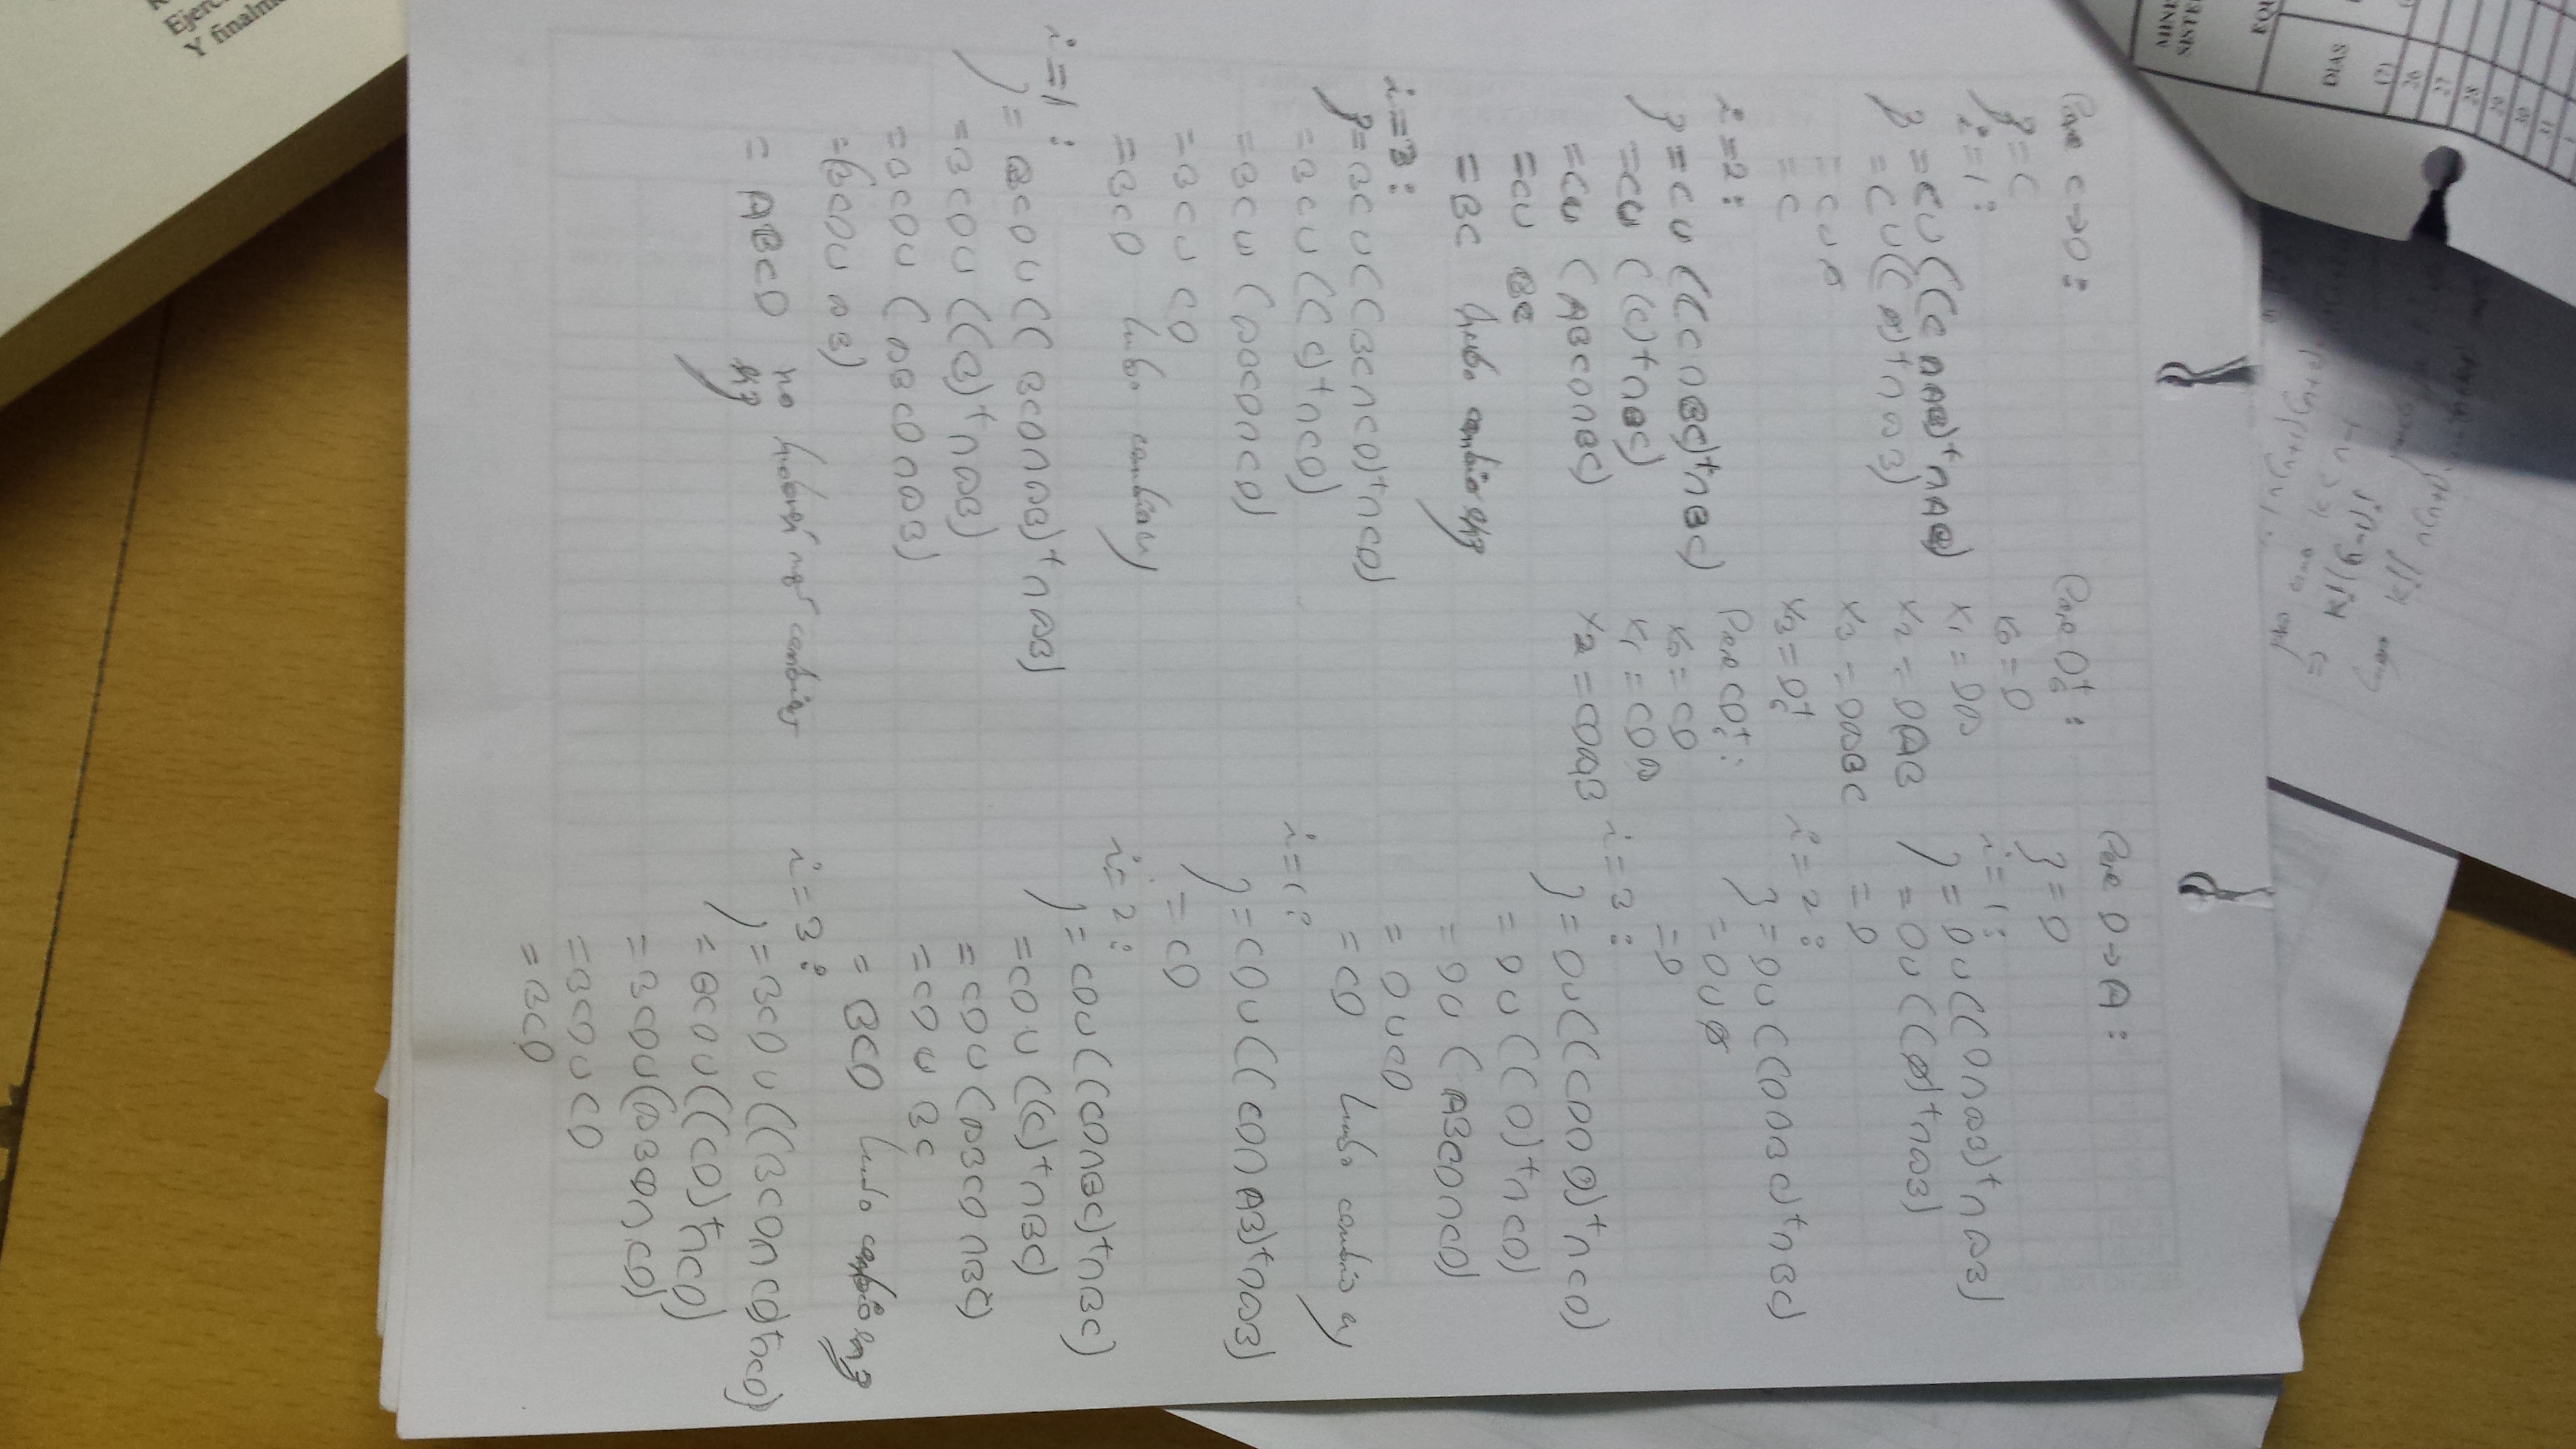 Para C→D:
y = C
i=1:
y = C∪((C∩AB)⁺∩AB)
= C∪((∅)⁺∩AB)
= C∪∅
= C
i=2:
y = C∪((C∩BC)⁺∩BC)
= C∪((C)⁺∩BC)
= C∪(ABCD∩BC)
= C∪BC
= BC hubo cambio en y
i=3:
y = BC∪((BC∩CD)⁺∩CD)
= BC∪((C)⁺∩CD)
= BC∪(ABCD∩CD)
= BC∪CD
= BCD hubo cambio en y
i=1:
y = BCD∪((BCD∩AB)⁺∩AB)
= BCD∪((B)⁺∩AB)
= BCD∪(ABCD∩AB)
= (BCD∪AB)
= ABCD no habrá más cambios
en y
Para D⁺G:
X0 = D
X1 = DA
X2 = DAB
X3 = DABC
X3 = D⁺G
Para CD⁺G:
X0 = CD
X1 = CDA
X2 = CDAB
Para D→A:
y = D
i=1:
y = D∪((D∩AB)⁺∩AB)
y = D∪((∅)⁺∩AB)
= D
i=2:
y = D∪((D∩BC)⁺∩BC)
= D∪∅
= D
i=3:
y = D∪((CD∩D)⁺∩CD)
= D∪((D)⁺∩CD)
= D∪(ABCD∩CD)
= D∪CD
= CD hubo cambio en y
i=1:
y = CD∪((CD∩AB)⁺∩AB)
= CD
i=2:
y = CD∪((CD∩BC)⁺∩BC)
= CD∪((C)⁺∩BC)
= CD∪(ABCD∩BC)
= CD∪BC
= BCD hubo cambio en y
i=3:
y = BCD∪((BCD∩CD)⁺∩CD)
= BCD∪((CD)⁺∩CD)
= BCD∪(ABD∩CD)
= BCD∪CD
= BCD
Y finalm
DIAS